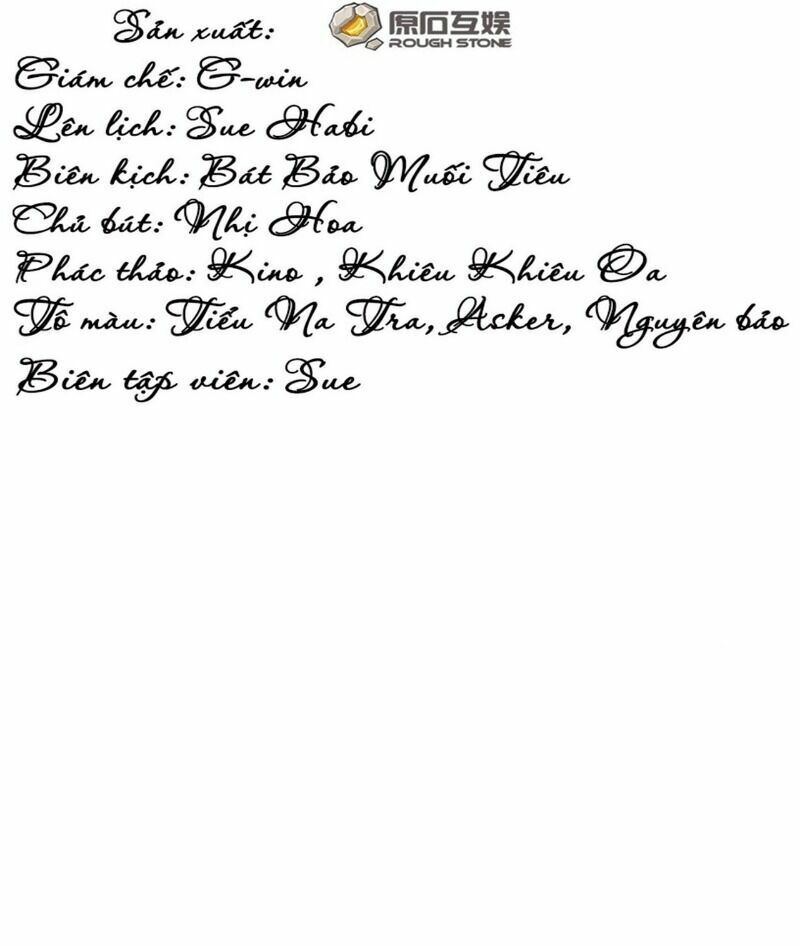 Sản xuất: 原石互娱
ROUGH STONE
Giám chế: G-win
Lên lịch: Sue Habi
Biên kịch: Bát Bảo Muối Tiêu
Chủ bút: Nhị Hoa
Phác thảo: Kino , Khiêu Khiêu Oa
Tô màu: Tiểu Na Tra, Asker, Nguyên bảo
Biên tập viên: Sue